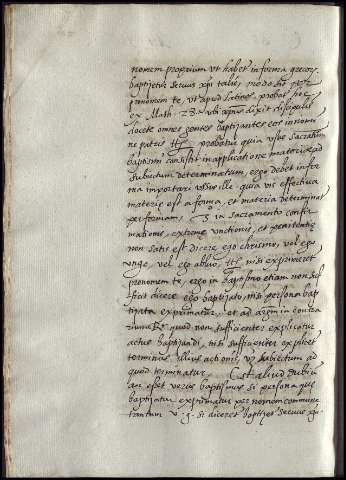 nomem proprium vt habet in forma grecor.
baptizetur seruus xpi talis, modo hic per
pronomen te, vt apud Latinos probat hoc
ex Math. 28. vbi xpus dixit discipulis
docete omnes gentes baptizantes eos in nomi
ne patris Itẽ probatur quia vsus sacramẽti
baptismi consistit in applicatione materiae ad
subiectum determinatum, ergo debet in for
ma importari vsus ille quia vis effectiua
materiae est a forma, et materia determinat
per formam. 3 in sacramento confir
mationis, extreme vnctionis, et penitentiae
non satis est dicere ego chrismo, vel ego
vngo, vel ego abluo, nisi exprimeret
pronomen te, ergo in baptismo etiam non suf
ficit dicere ego baptizo, nisi persona bap
tizata exprimatur, et ad argm in contra
rium R. quod non sufficienter explicatur
actus baptizandi, nisi sufficienter explicet
terminus illius actionis, vt subiectum ad
quod terminatur. Est aliud dubiũ
an esset verus baptismus si persona que
baptizatur exprimatur per nomen commune
tantum v. g. si diceret baptizet seruus xpi